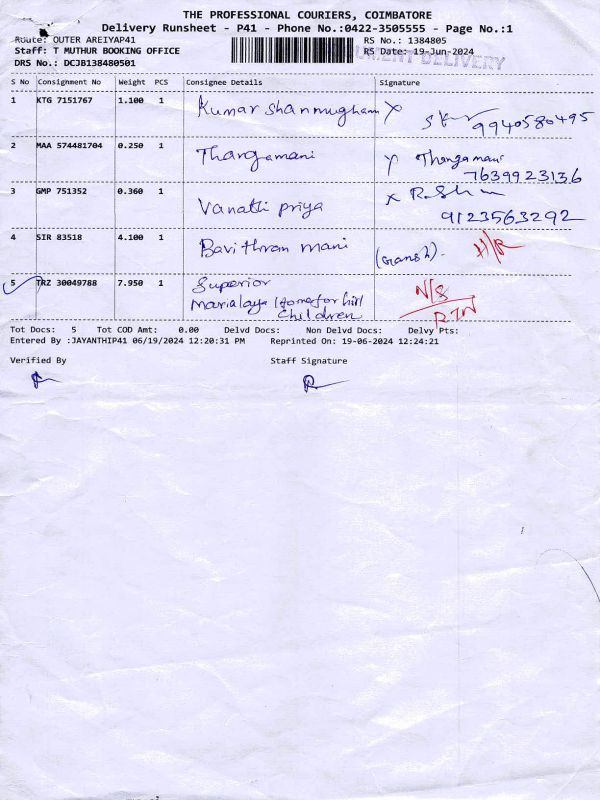 THE PROFESSIONAL COURIERS, COIMBATORE
Delivery Runsheet - P41 - Phone No.:0422-3505555 - Page No.:1
Route: OUTER AREIYAP41 RS No.: 1384805
Staff: T MUTHUR BOOKING OFFICE RS Date: 19-Jun-2024
DRS No.: DCJB138480501 DELIVERY
S No Consignment No Weight PCS Consignee Details Signature
1 KTG 7151767 1.100 1 Kumar Shanmugham X
9940580495
2 MAA 574481704 0.250 1 Thangamani Thangamani
7639923136
3 GMP 751352 0.360 1 Vanathi priya X
9123563292
4 SIR 83518 4.100 1 Bavithran mani
5 TRZ 30049788 7.950 1 Superior N/S
Marialaya Home for RTN
Children
Tot Docs: 5 Tot COD Amt: 0.00 Delvd Docs: Non Delvd Docs: Delvy Pts:
Entered By :JAYANTHIP41 06/19/2024 12:20:31 PM Reprinted On: 19-06-2024 12:24:21
Verified By Staff Signature